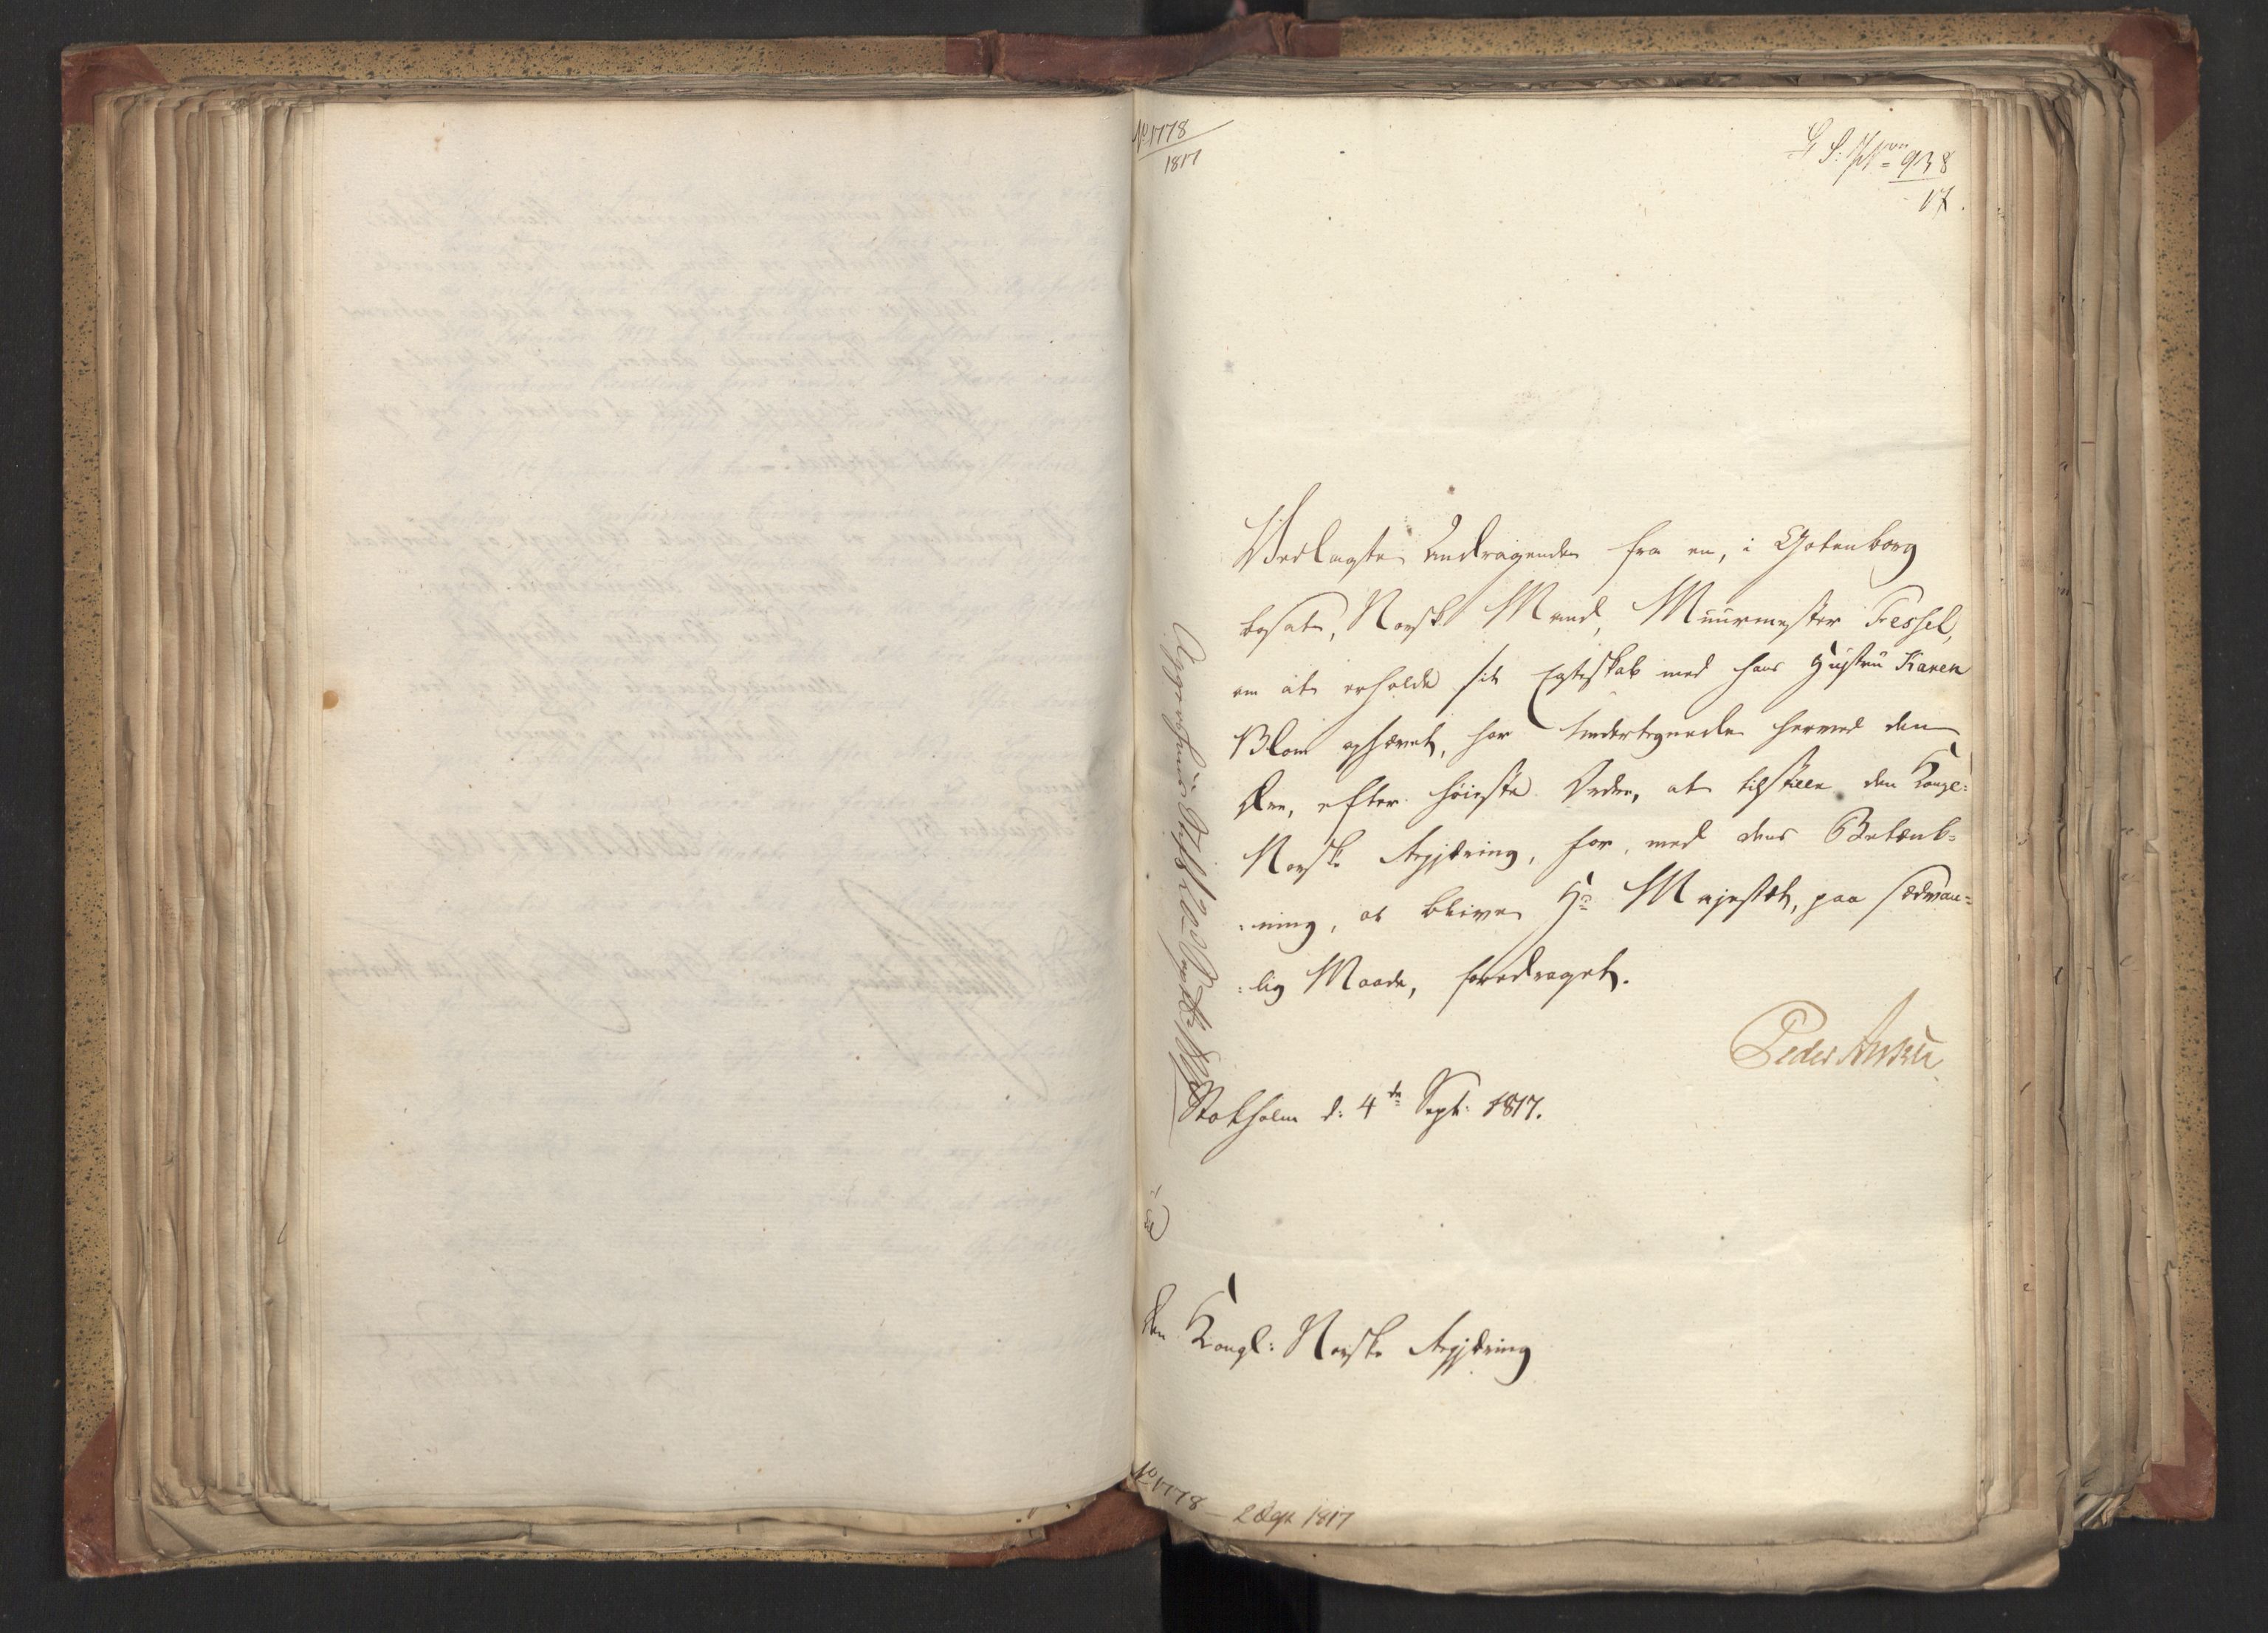 No 1778
1817
938
17.
Vedlagte Andragende fra en, i Gotenborg
bosat, Norsk Mand, Muurmester Fessel,
om at erholde sit Egteskab med hans Hustru Karen
Blom ophævet, har Undertegnede herved den
Ære, efter høieste Ordre, at tilstille den Kongl:
Norske Regjering, for, med dens Betænk-
:ning, at blive Hs Majestæt, paa sædvan-
:lig Maade, foredraget.
Peder Anker
Stokholm d: 4de Sept: 1817.
Den Kongl: Norske Regjering
No 1778 - 2 Dept 1817